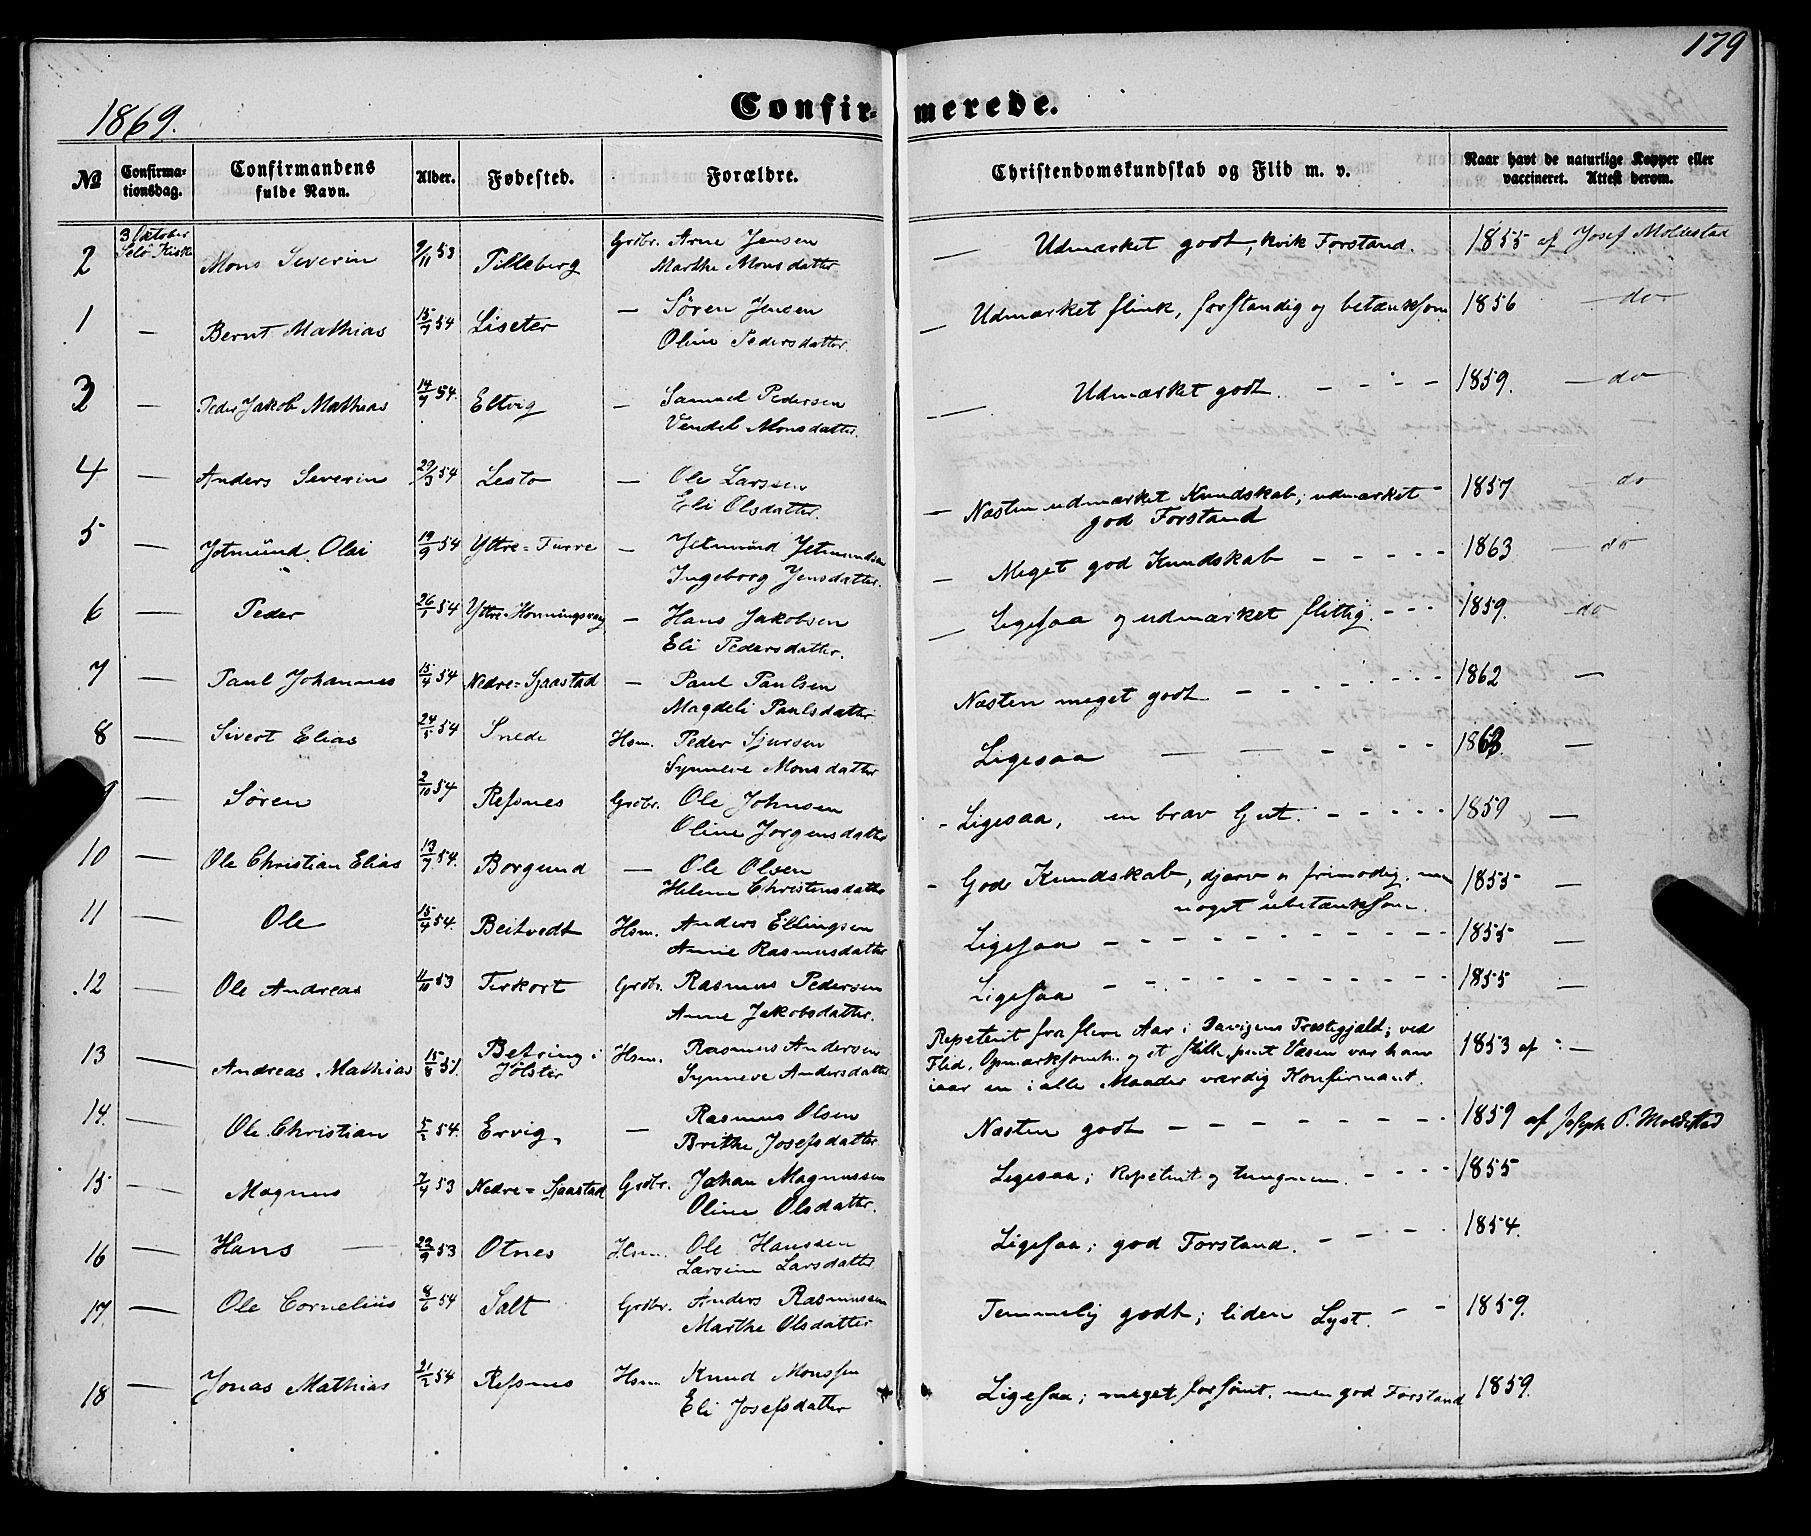 179
1869.
Confirmerede.
No
Confirmationsdag.
Confirmandens fulde Navn.
Alder.
Fødested.
Forældre.
Christendomskundskab og Flid m. v.
Naar havt de naturlige Kopper eller vaccineret. Attest derom.
3 Oktober
Selø Kirke
2 Mons Severin 9/11 53 Tilleberg Grdbr. Arne Jensen — Udmærket godt, kvik Forstand. 1855 af Josef Moldestad
Marthe Monsdatter
1 — Bernt Mathias 15/7 54 Liseter — Søren Jensen — Udmærket flink, forstandig og betænksom 1856 — do —
Oline Pedersdatter.
3 — Peder Jakob Mathias 14/9 54. Eltvig — Samuel Pedersen — Udmærket godt. - - - - 1859. — do —
Vendel Monsdatter.
4 — Anders Severin 29/3 54 Lesto — Ole Larssen — Næsten udmærket Kundskab; udmærket 1857 — do
Eli Olsdatter. god Forstand
5 — Jetmund Olai 19/9 54 Yttre=Furre — Jetmund Jetmundsen — Meget god Kundskab - - - - - 1863 — do
Ingeborg Jensdatter.
6 — Peder 26/1 54 Yttre=Honningsvaag — Hans Jakobsen — Ligesaa og udmærket flittig. - - - 1859. do
Eli Pedersdatter.
7 — Paul Johannes 15/4 54 Nedre=Sjaastad — Paul Paulsen Næsten meget godt - - - - - - - 1862 —
Magdeli Paulsdatter
8 — Sivert Elias 24/5 54 Snede Hsm. Peder Sjursen Ligesaa — — - - - - 1862. —
Synneve Monsdatter
— Søren 2/10 54 Refsnes Grdbr. Ole Johnsen - Ligesaa, en brav Gut. - - - - - 1859 —
Oline Jørgensdatter
10 — Ole Christian Elias 13/7 54. Borgund — Ole Olsen - Gode Kundskab, djærv og frimodig, men 1855 —
Helene Christensdatter noget ubetænksom.
11 — Ole 15/4 54. Beitvedt Hsm. Anders Ellingsen Ligesaa - - - - - - - - - - 1855 —
Anne Rasmusdatter
12 — Ole Andreas 11/10 53 Tirkort Grdbr. Rasmus Pedersen Ligesaa - - - - - - - - - - 1855 —
Anne Jakobsdatter.
13 — Andreas Mathias 15/8 51. Befring i Hsm. Rasmus Andersen Repetent fra flere Aar i Davigens Præstegjeld; ved 1853 af —
Jølster Synneve Andersdatter Flid, Opmærksomh. og et stille, pent Væsen var han
iaar en i alle Maader værdig Konfirmant.
14. — Ole Christian 5/2 54. Ervig. — Rasmus Olsen Næsten godt - - - - - - - - 1859 af Joseph P. Moldestad
Brithe Josefsdatter.
15 — Magnus 7/4 53 Nedre=Sjaastad Grdbr. Johan Magnussen Ligesaa; Repetent og tungnem. - - - - 1855
Oline Olsdatter.
16 — Hans — 22/9 53 Otnes Hsm. Ole Hanssen Ligesaa; god Forstand. - - - - 1854.
Larsine Larsdatter
17 — Ole Cornelius 8/6 54 Salt Grdbr. Anders Rasmussen Temmelig godt; liden Lyst. - - 1859.
Marthe Olsdatter
18 — Jonas Mathias 21/2 54 Refsnes Hsm Knud Monssen Ligesaa; meget forsømt, men god Forstand 1859.
Eli Josefsdatter